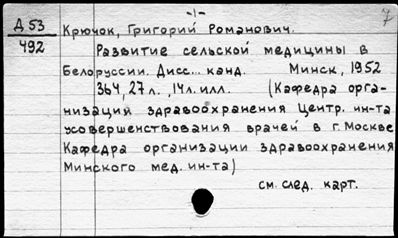 -1-
7
Д 53
492
Крючок, Григорий Романович.
Развитие сельской медицины в
Белоруссии. Дисс... канд. Минск, 1952
364, 27 л., 14 л. илл. (Кафедра орга-
низации здравоохранения Центр. ин-та
усовершенствования врачей в г. Москве
Кафедра организации здравоохранения
Минского мед. ин-та)
см. след. карт.